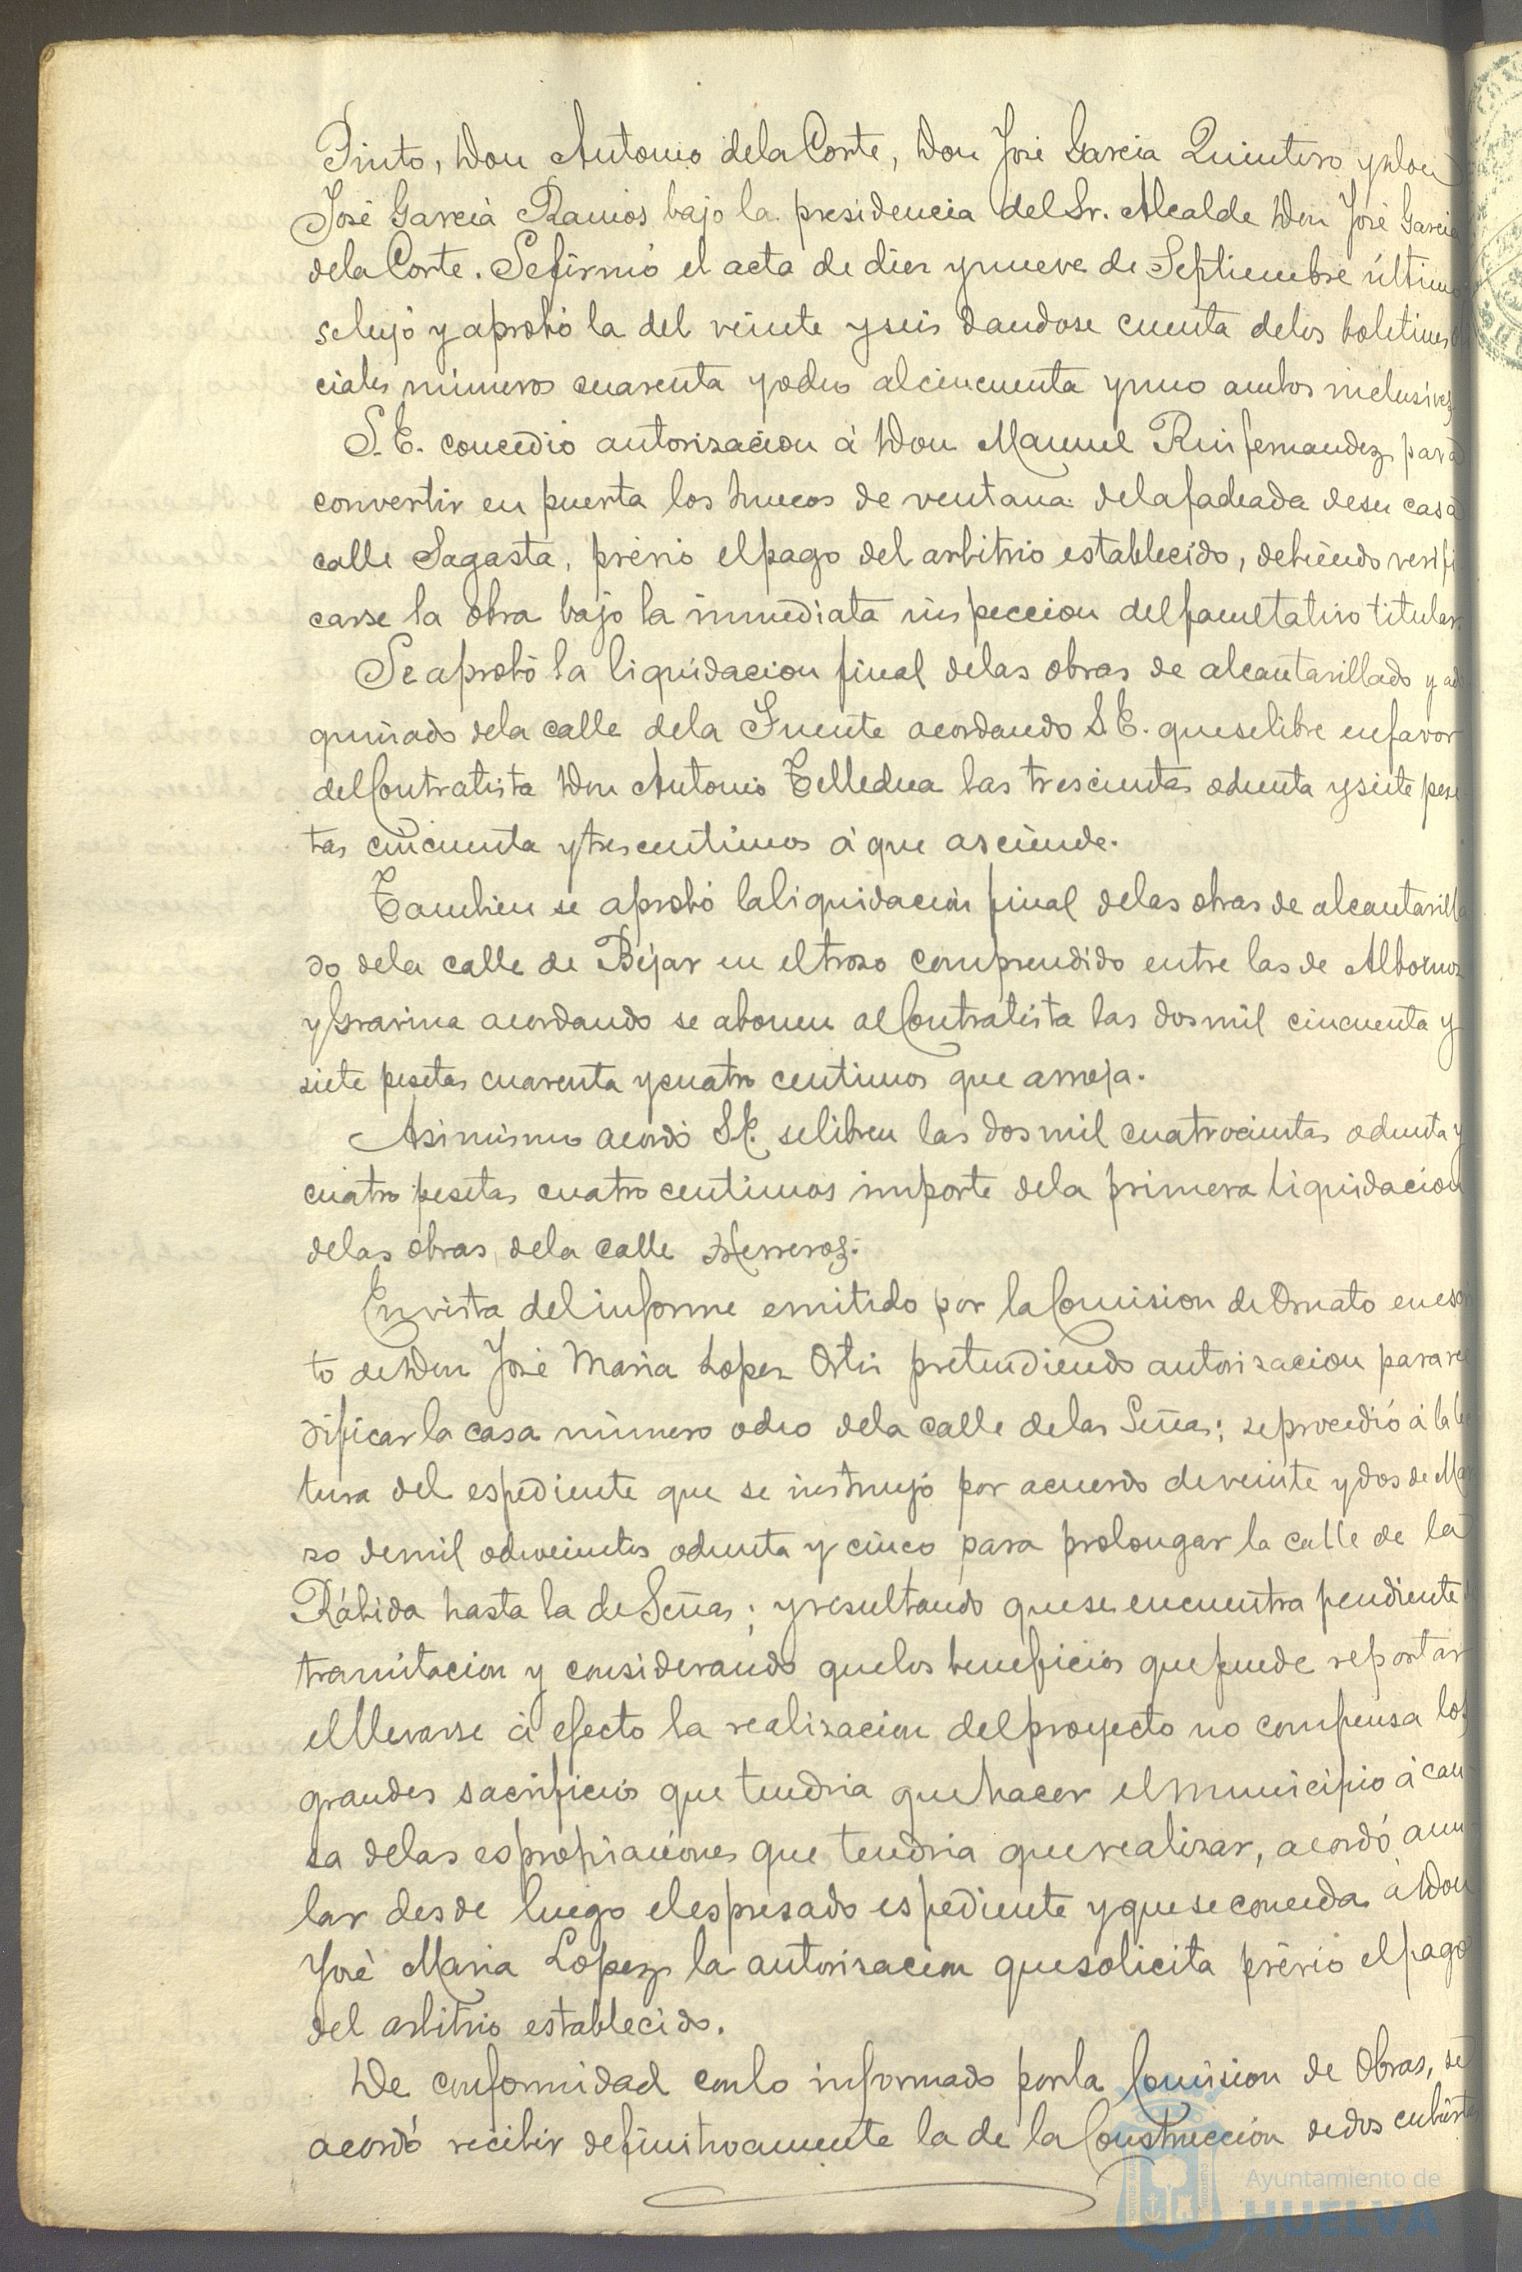 Pinto, Don Antonio dela Corte, Don José Garcia Quintero y don
José Garcia Ramos bajo la presidencia del Sr. Alcalde Don José Garcia
dela Corte. Se firmó el acta de diez y nueve de Septiembre último
se leyó y aprobó la del veinte y seis dandose cuenta delos boletines ofi
ciales números cuarenta y ocho al cincuenta y uno ambos inclusives.
S. E. concedió autorizacion á Don Manuel Ruifernandez para
convertir en puerta los huecos de ventana dela fachada desu casa
calle Sagasta, prévio el pago del arbitrio establecido, debiendo verifi
carse la obra bajo la inmediata inspeccion del facultativo titular.
Se aprobó la liquidacion final delas obras de alcantarillado y ado
quinado dela calle dela Fuente acordando S. E. que se libre en favor
del Contratista Don Antonio Tellechea las trescientas ochenta y siete pese
tas cincuenta y tres centimos á que asciende.
Tambien se aprobó la liquidacion final delas obras de alcantarilla
do dela calle de Béjar en el trozo comprendido entre las de Albornoz
y Gravina acordando se abonen al Contratista las dos mil cincuenta y
siete pesetas cuarenta y cuatro centimos que arroja.
Asimismo acordó S.E. se libren las dos mil cuatrocientas ochenta y
cuatro pesetas cuatro centimos importe dela primera liquidacion
delas obras dela calle Herreros.
En vista del informe emitido por la Comision de Ornato en escri
to de Don José Maria Lopez Ortiz pretendiendo autorizacion para ree
dificar la casa número ocho dela calle delas Señas; se procedió á la lec
tura del espediente que se instruyó por acuerdo de veinte y dos de Mar
zo de mil ochocientos ochenta y cinco para prolongar la calle de la
Rábida hasta la de Señas; y resultando que se encuentra pendiente de
tramitacion y considerando que los beneficios que puede reportar
el llevarse á efecto la realizacion del proyecto no compensa los
grandes sacrificios que tendria que hacer el Municipio á cau-
sa delas espropiaciones que tendria que realizar, acordó anu-
lar desde luego el espresado espediente y que se conceda á Don
José Maria Lopez la autorizacion que solicita prévio el pago
del arbitrio establecido.
De conformidad con lo informado por la Comision de Obras, se
acordó recibir definitivamente la de la Construccion de dos cubiertas
Ayuntamiento de
HUELVA